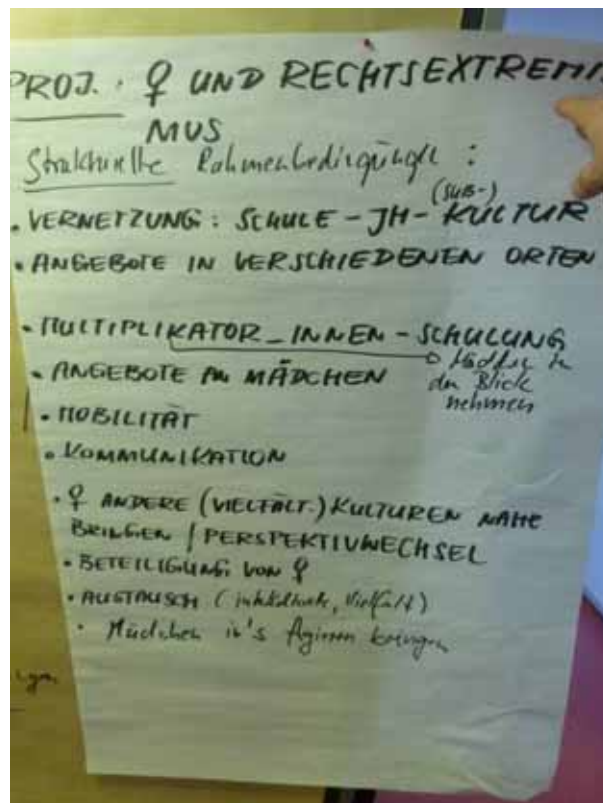 PROJ. ♀ UND RECHTSEXTREMIS
MUS
Strukturelle Rahmenbedingungen :
(SUB-)
• VERNETZUNG: SCHULE - JH - KULTUR
• ANGEBOTE IN VERSCHIEDENEN ORTEN
• MULTIPLIKATOR_INNEN - SCHULUNG
Mädchen in
• ANGEBOTE AN MÄDCHEN den Blick
nehmen
• MOBILITÄT
• KOMMUNIKATION
• ♀ ANDERE (VIELFÄLT.) KULTUREN NAHE
BRINGEN / PERSPEKTIVWECHSEL
• BETEILIGUNG VON ♀
• AUSTAUSCH (interkulturell, Vielfalt)
• Mädchen in's Agieren bringen